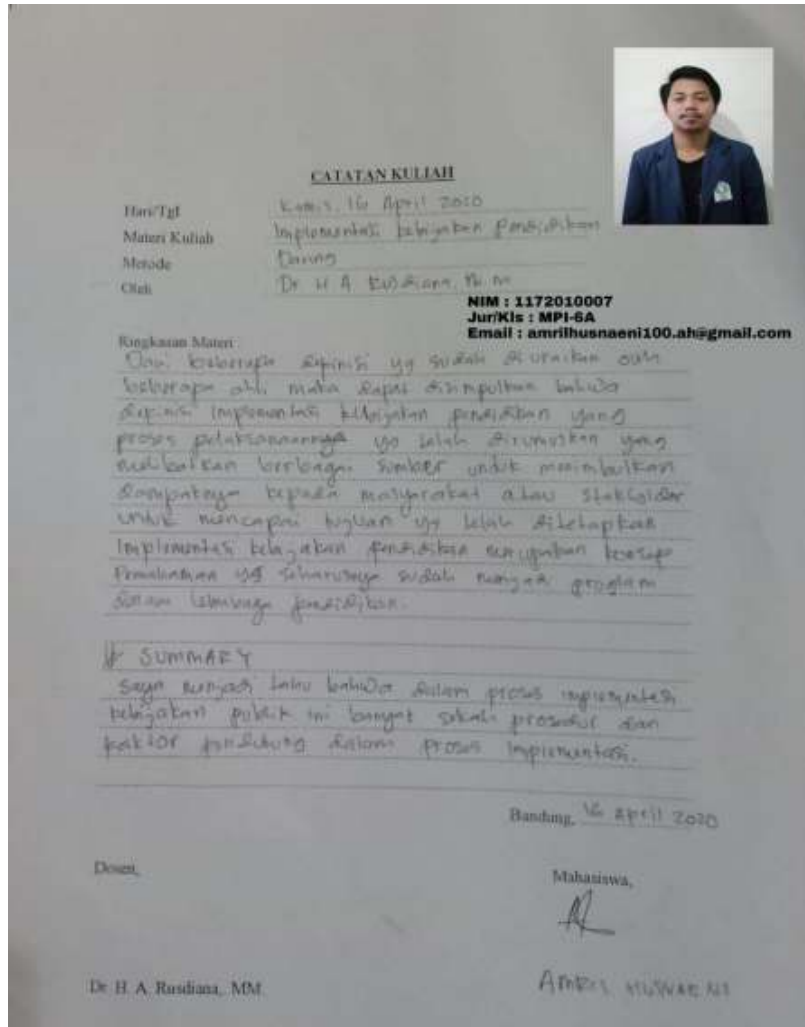 CATATAN KULIAH
Hari/Tgl Kamis, 16 April 2020
Materi Kuliah Implementasi kebijakan pendidikan
Metode Daring
Oleh Dr H A Rusdiana,
NIM : 1172010007
Jur/Kls : MPI-6A
Email : amrilhusnaeni100.ah@gmail.com
Ringkasan Materi
Dari beberapa definisi yg sudah di uraikan oleh
beberapa ahli maka dapat disimpulkan bahwa
definisi implementasi kebijakan pendidikan yang
proses pelaksanaannya yg telah dirumuskan yang
melibatkan berbagai sumber untuk menimbulkan
dampaknya kepada masyarakat atau
untuk mencapai tujuan yg telah ditetapkan
Implementasi kebijakan pendidikan merupakan konsep
yg seharusnya sudah menjadi program
dalam lembaga pendidikan.
SUMMARY
Saya menjadi tahu bahwa dalam proses implementasi
kebijakan publik ini banyak sekali prosedur dan
faktor pendukung dalam proses implementasi.
Bandung, 16 April 2020
Dosen,
Mahasiswa,
Dr. H. A. Rusdiana, MM.
AMRIL HUSNAENI